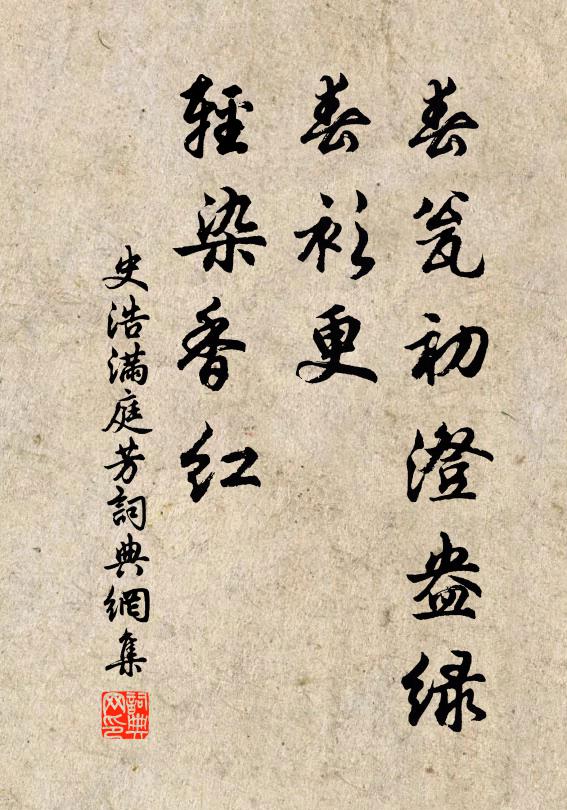 春瓮初澄盎绿
春衫更
轻染香红
史浩满庭芳詞典網集
詞典
网印